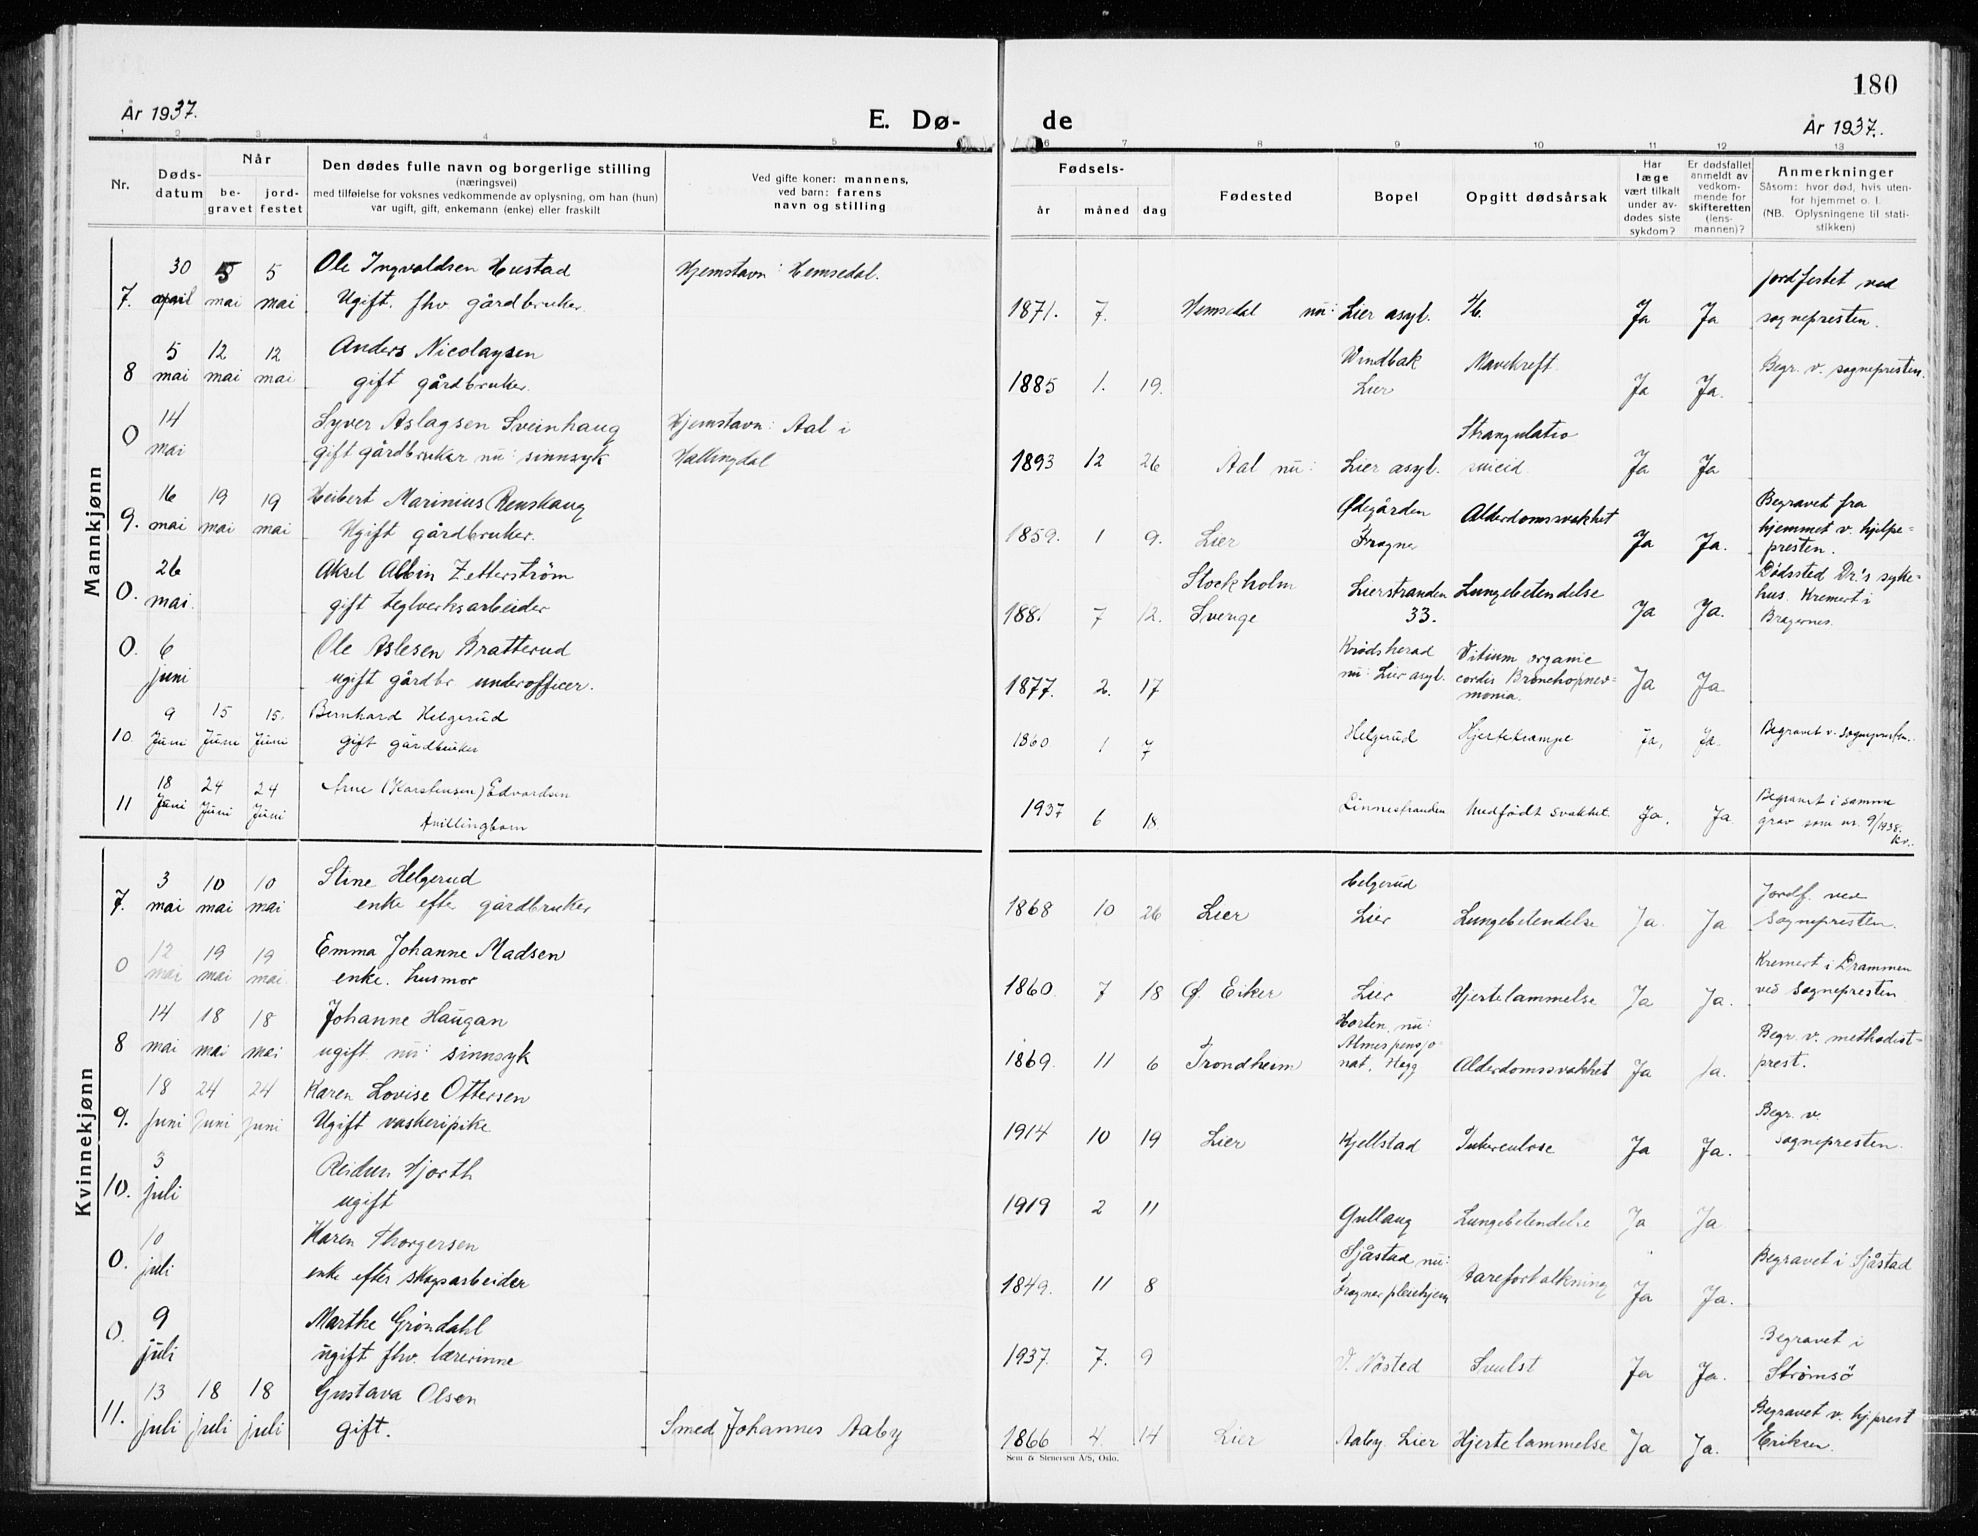 180
År 1937.
E. Dø-
de
År 1937.
1 2 3 4 5 6 7 8 9 10 11 12 13
Nr.
Døds-
datum
Når
be-
gravet
jord-
festet
Den dødes fulle navn og borgerlige stilling
(næringsvei)
med tilføielse for voksnes vedkommende av oplysning, om han (hun)
var ugift, gift, enkemann (enke) eller fraskilt
Ved gifte koner: mannens,
ved barn: farens
navn og stilling
Fødsels-
år
måned
dag
Fødested
Bopel
Opgitt dødsårsak
Har
læge
vært tilkalt
under av-
dødes siste
sykdom?
Er dødsfallet
anmeldt av
vedkom-
mende for
skifteretten
(lens-
mannen)?
Anmerkninger
Såsom: hvor død, hvis uten-
for hjemmet o. l.
(NB. Oplysningene til stati-
stikken)
Mannkjønn
7. 30 april 5 mai 5 mai
Ole Ingvaldsen Hustad
Ugift. fhv gårdbruker.
Hjemstavn: Hemsedal.
1871. 7. Hemsedal nu: Lier asyl. Ja Ja
jordfestet ved
sognepresten.
8 5 mai 12 mai 12 mai
Anders Nicolaysen
gift gårdbruker.
1885 1. 19.
Windbak
Lier
Mavekreft. Ja Ja.
Begr. v. sognepresten.
0 14 mai
Syver Aslagsen Sveinhaug
gift gårdbruker nu: sinnsyk
Hjemstavn: Aal i
Hallingdal
1893 12 26 Aal nu: Lier asyl.
Strangulatio
suicid. Ja Ja
9. 16 mai 19 mai 19 mai
Heibert Marinius Renskaug
Ugift gårdbruker.
1859. 1 9. Lier
Ødegården
Fragner
Alderdomssvakhet Ja Ja.
Begravet fra
hjemmet v. hjelpe-
presten.
0. 26 mai.
Aksel Albin Zetterström
gift teglverksarbeider
1881 7 12.
Stockholm
Sverige
Lierstranden
33.
Lungebetendelse Ja Ja.
Dødssted Dr.'s syke-
hus. Kremert i
Bragernes.
0. 6 juni
Ole Aslesen Bratterud
ugift gårdbr underofficer.
1877. 2. 17
Krødsherad
nu: Lier asyl.
Vitium organic
cordis Bronchopnev-
monia. Ja Ja
10. 9 Juni 15 Juni 15. Juni
Bernhard Helgerud
gift gårdbruker
1860 1 7 Helgerud Hjertekrampe Ja, Ja.
Begravet v. sognepresten.
11 18 Juni 24 Juni 24 Juni
Arne (Karstensen) Edvardsen
tvillingbarn
1937 6 18. Linnestranden Medfødt svakhet. Ja. Ja
Begravet i samme
grav som nr. 9/1938.
Kv.
Kvinnekjønn
7. 3 mai 10 mai 10 mai
Stine Helgerud
enke efter gårdbruker
1868 10 26 Lier
Helgerud
Lier
Lungebetendelse Ja. Ja
Jordf. ved
Sognepresten.
0 12 mai 19 mai 19 mai.
Emma Johanne Madsen
enke. husmor
1860. 7 18 Ø. Eiker Lier Hjertelammelse Ja Ja.
Kremert i Drammen
ved Sognepresten
8 14 mai 18 mai 18 mai
Johanne Haugan
ugift. nu: sinnsyk
1869. 11 6 Trondheim
Horten, nu:
Almespensjo-
nat, Hegg
Alderdomssvakhet Ja Ja.
Begr. v. methodist-
prest.
9. 18 Juni 24 Juni 24 Juni
Karen Lovise Ottersen
Ugift vaskeripike
1914 10 19 Lier Kjellstad Tuberculose Ja Ja.
Begr. v.
Sognepresten.
10. 3 juli
Reidun Hjorth
ugift
1919 2 11 Gullaug Lungebetendelse Ja Ja
0. 10 juli
Karen Thorgersen
enke efter skogsarbeider
1849. 11 8
Sjåstad nu:
Fragner pleiehjem
Aareforkalkning Ja Ja.
Begravet i Sjåstad
0. 9 juli
Marthe Grøndahl
ugift fhv. lærerinne
1937. 7. 9 V. Nøsted Svulst Ja Ja.
Begravet i
Strømsö
11. 13 juli 18 juli 18 juli
Gustava Olsen
gift.
Smed Johannes Aaby
1866 4. 14 Lier Aaby Lier Hjertelammelse Ja Ja.
Begravet v. hj.prest
Eriksen.
Sem & Stenersen A/S, Oslo.